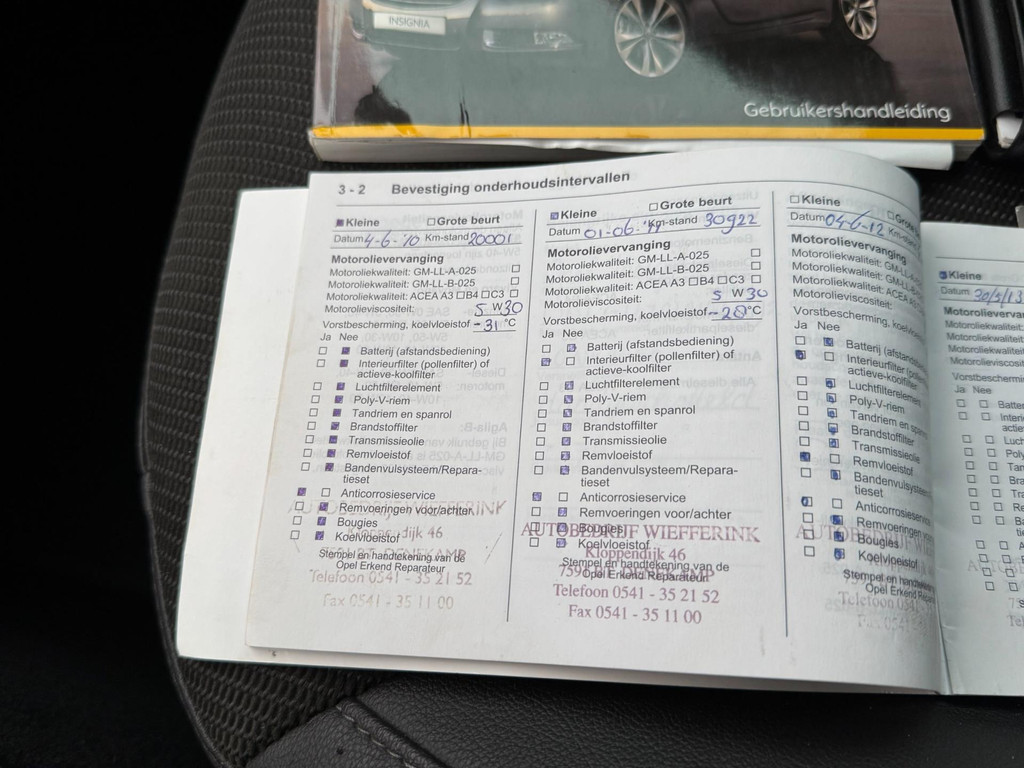 INSIGNIA
Gebruikershandleiding
3 - 2 Bevestiging onderhoudsintervallen
Kleine Grote beurt
Datum 4-6-'10 Km-stand 20001
Motorolievervanging
Motoroliekwaliteit: GM-LL-A-025
Motoroliekwaliteit: GM-LL-B-025
Motoroliekwaliteit: ACEA A3 B4 C3
Motorolieviscositeit: 5 W30
Vorstbescherming, koelvloeistof -31 °C
Ja Nee
Batterij (afstandsbediening)
Interieurfilter (pollenfilter) of
actieve-koolfilter
Luchtfilterelement
Poly-V-riem
Tandriem en spanrol
Brandstoffilter
Transmissieolie
Remvloeistof
Bandenvulsysteem/Repara-
tieset
Anticorrosieservice
Remvoeringen voor/achter
Bougies
Koelvloeistof
AUTOBEDRIJF WIEFFERINK
Kloppendijk 46
Stempel en handtekening van de
Opel Erkend Reparateur
Telefoon 0541 - 35 21 52
Fax 0541 - 35 11 00
Kleine Grote beurt
Datum 01-06- Km-stand 30922
Motorolievervanging
Motoroliekwaliteit: GM-LL-A-025
Motoroliekwaliteit: GM-LL-B-025
Motoroliekwaliteit: ACEA A3 B4 C3
Motorolieviscositeit: 5 W30
Vorstbescherming, koelvloeistof -20 °C
Ja Nee
Batterij (afstandsbediening)
Interieurfilter (pollenfilter) of
actieve-koolfilter
Luchtfilterelement
Poly-V-riem
Tandriem en spanrol
Brandstoffilter
Transmissieolie
Remvloeistof
Bandenvulsysteem/Repara-
tieset
Anticorrosieservice
Remvoeringen voor/achter
Bougies
AUTOBEDRIJF WIEFFERINK
Koelvloeistof
Kloppendijk 46
Stempel en handtekening van de
Opel Erkend Reparateur
Telefoon 0541 - 35 21 52
Fax 0541 - 35 11 00
Kleine Grote
Datum 04-6-12 Km-stand
Motorolievervanging
Motoroliekwaliteit: GM-LL-
Motoroliekwaliteit: GM-LL-
Motoroliekwaliteit: ACEA
Motorolieviscositeit:
Vorstbescherming, koelvloei
Ja Nee
Batterij (afstands
Interieurfilter (pollen
actieve-koolfilter
Luchtfilterelement
Poly-V-riem
Tandriem en spa
Brandstoffilter
Transmissieolie
Remvloeistof
Bandenvulsysteem
tieset
Anticorrosieservice
Remvoeringen
Bougies
AUTOBEDRIJF
Koelvloeistof
Stempel en handteken
Opel Erkend Repa
Telefoon 0541
Kleine
Datum 30/5/13
Motorolievervan
Motoroliekwaliteit
Motoroliekwaliteit
Motoroliekwaliteit
Motorolieviscositeit
Vorstbescherming
Ja Nee
Batte
Interi
actieve
Lucht
Poly
Tand
Bra
Tra
Re